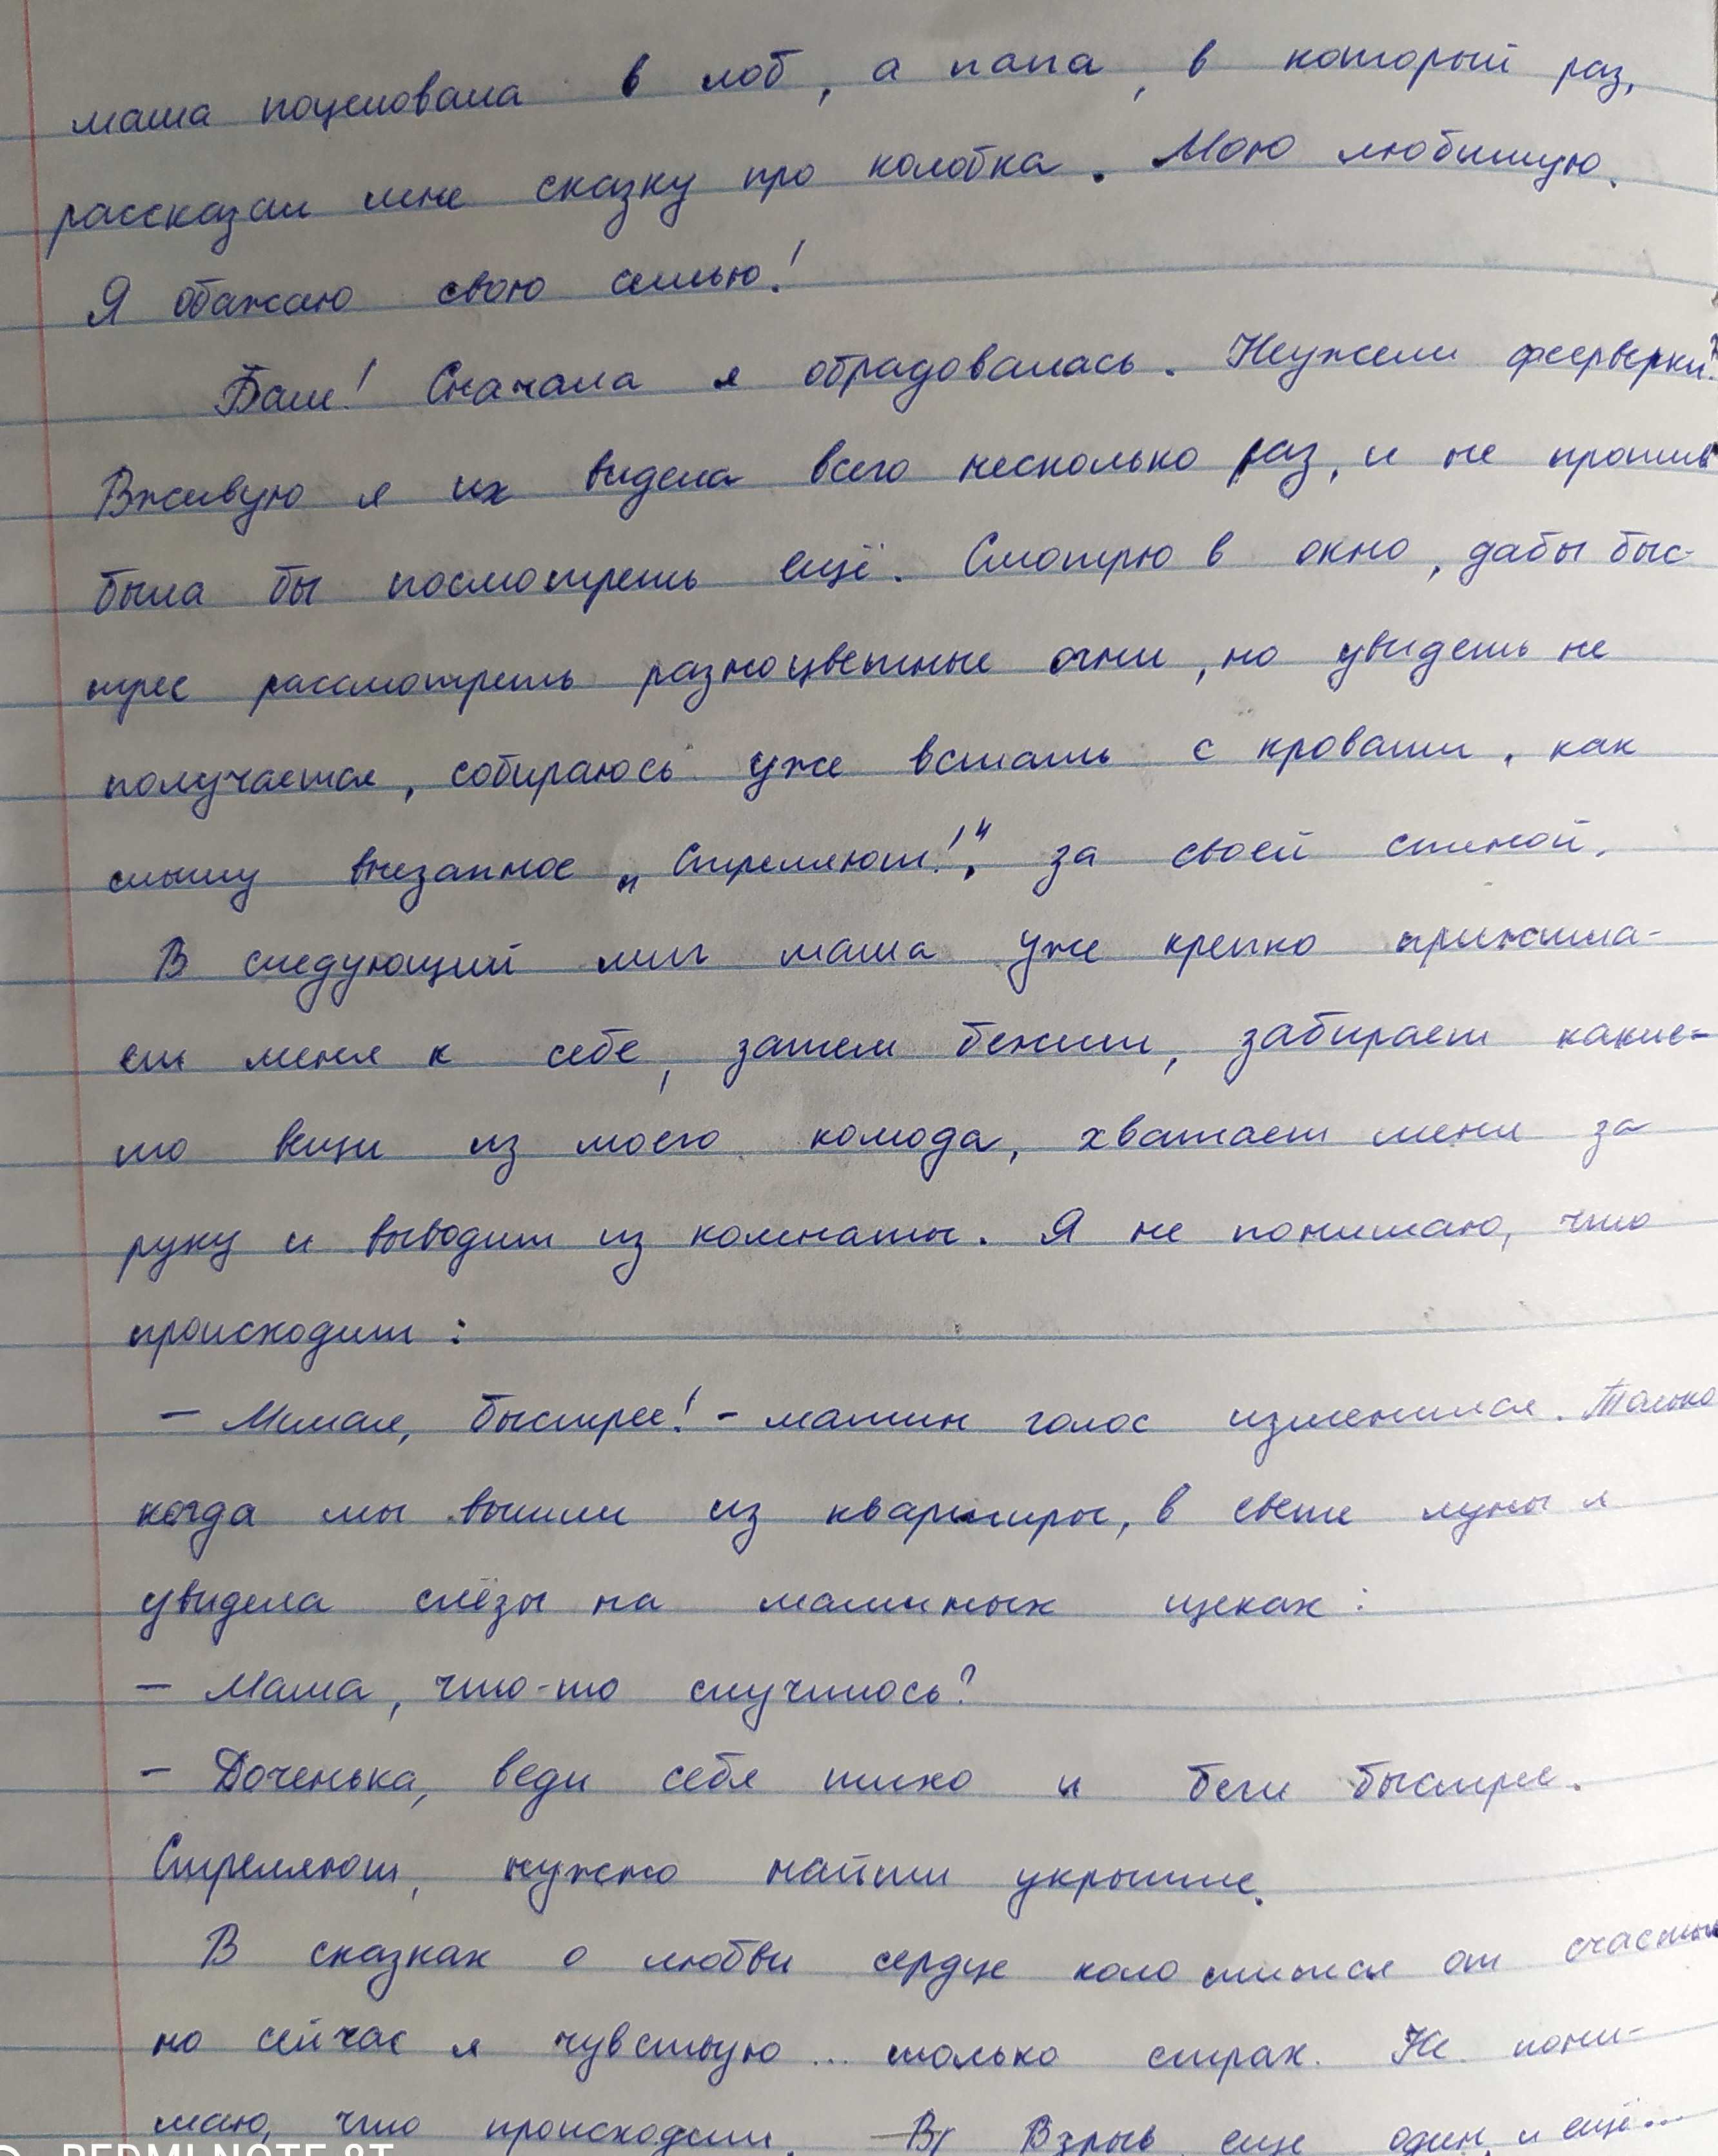 мама поцеловала в лоб, а папа, в который раз,
рассказал мне сказку про колобка. Мою любимую.
Я обажаю свою семью!
Бам! Сначала я обрадовалась. Неужели феерверки?
Вживую я их видела всего несколько раз, и не против
была бы посмотреть ещё. Смотрю в окно, дабы быс-
трее рассмотреть разноцветные огни, но увидеть не
получается, собираюсь уже встать с кровати, как
слышу внезапное „Стреляют!“, за своей спиной.
В следующий миг мама уже крепко прижима-
ет меня к себе, затем бежит, забирает какие-
то вещи из моего комода, хватает меня за
руку и выводит из комнаты. Я не понимаю, что
происходит:
– Милая, быстрее! – мамин голос изменился. Только
когда мы вышли из квартиры, в свете луны я
увидела слёзы на маминых щеках:
– Мама, что-то случилось?
– Доченька, веди себя тихо и беги быстрее.
Стреляют, нужно найти укрытие.
В сказках о любви сердце колотится от счастья
но сейчас я чувствую... только страх. Не пони-
маю, что происходит. Вз Взрыв, еще один, и ещё...
REDMI NOTE 8T